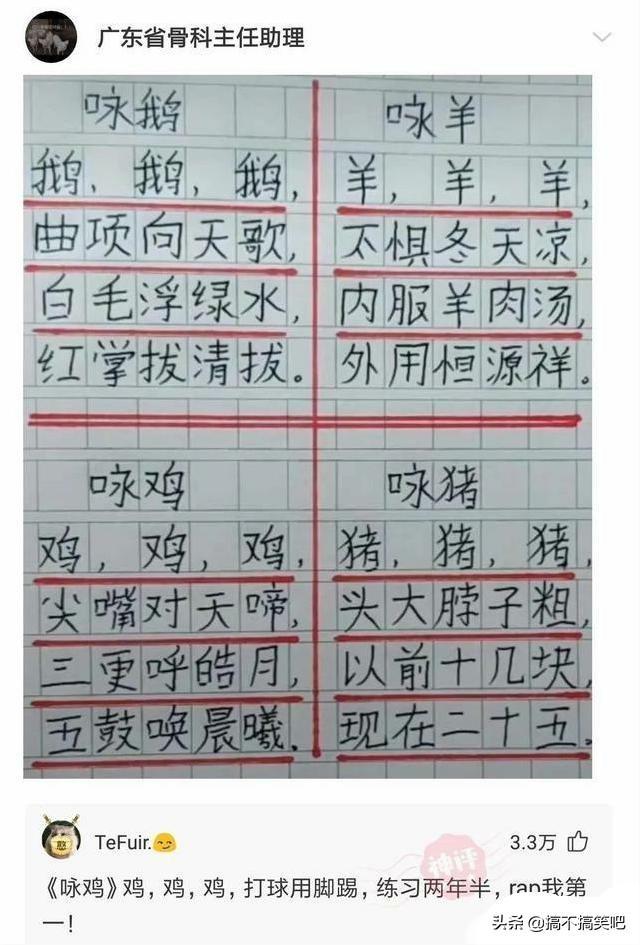 广东省骨科主任助理
咏鹅
鹅、鹅，鹅，
曲项向天歌，
白毛浮绿水，
红掌拔清拔。
咏羊
羊，羊，羊，
不惧冬天凉，
内服羊肉汤，
外用恒源祥。
咏鸡
鸡，鸡，鸡，
尖嘴对天啼，
三更呼皓月，
五鼓唤晨曦.
咏猪
猪，猪，猪，
头大脖子粗，
以前十几块，
现在二十五。
TeFuir.😏
3.3万
神评
《咏鸡》鸡，鸡，鸡，打球用脚踢，练习两年半，rap我第
一！
头条 @搞不搞笑吧